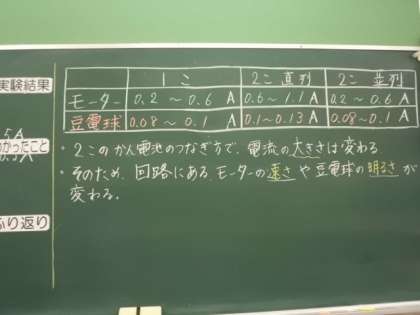 実験結果
1こ 2こ 直列 2こ 並列
モーター 0.2～0.6 A 0.6～1.1 A 0.2～0.6 A
豆電球 0.08～0.1 A 0.1～0.13 A 0.08～0.1 A
5A
かったこと
・2このかん電池のつなぎ方で、電流の大きさは変わる
・そのため、回路にあるモーターの速さや豆電球の明るさが
変わる。
ふり返り